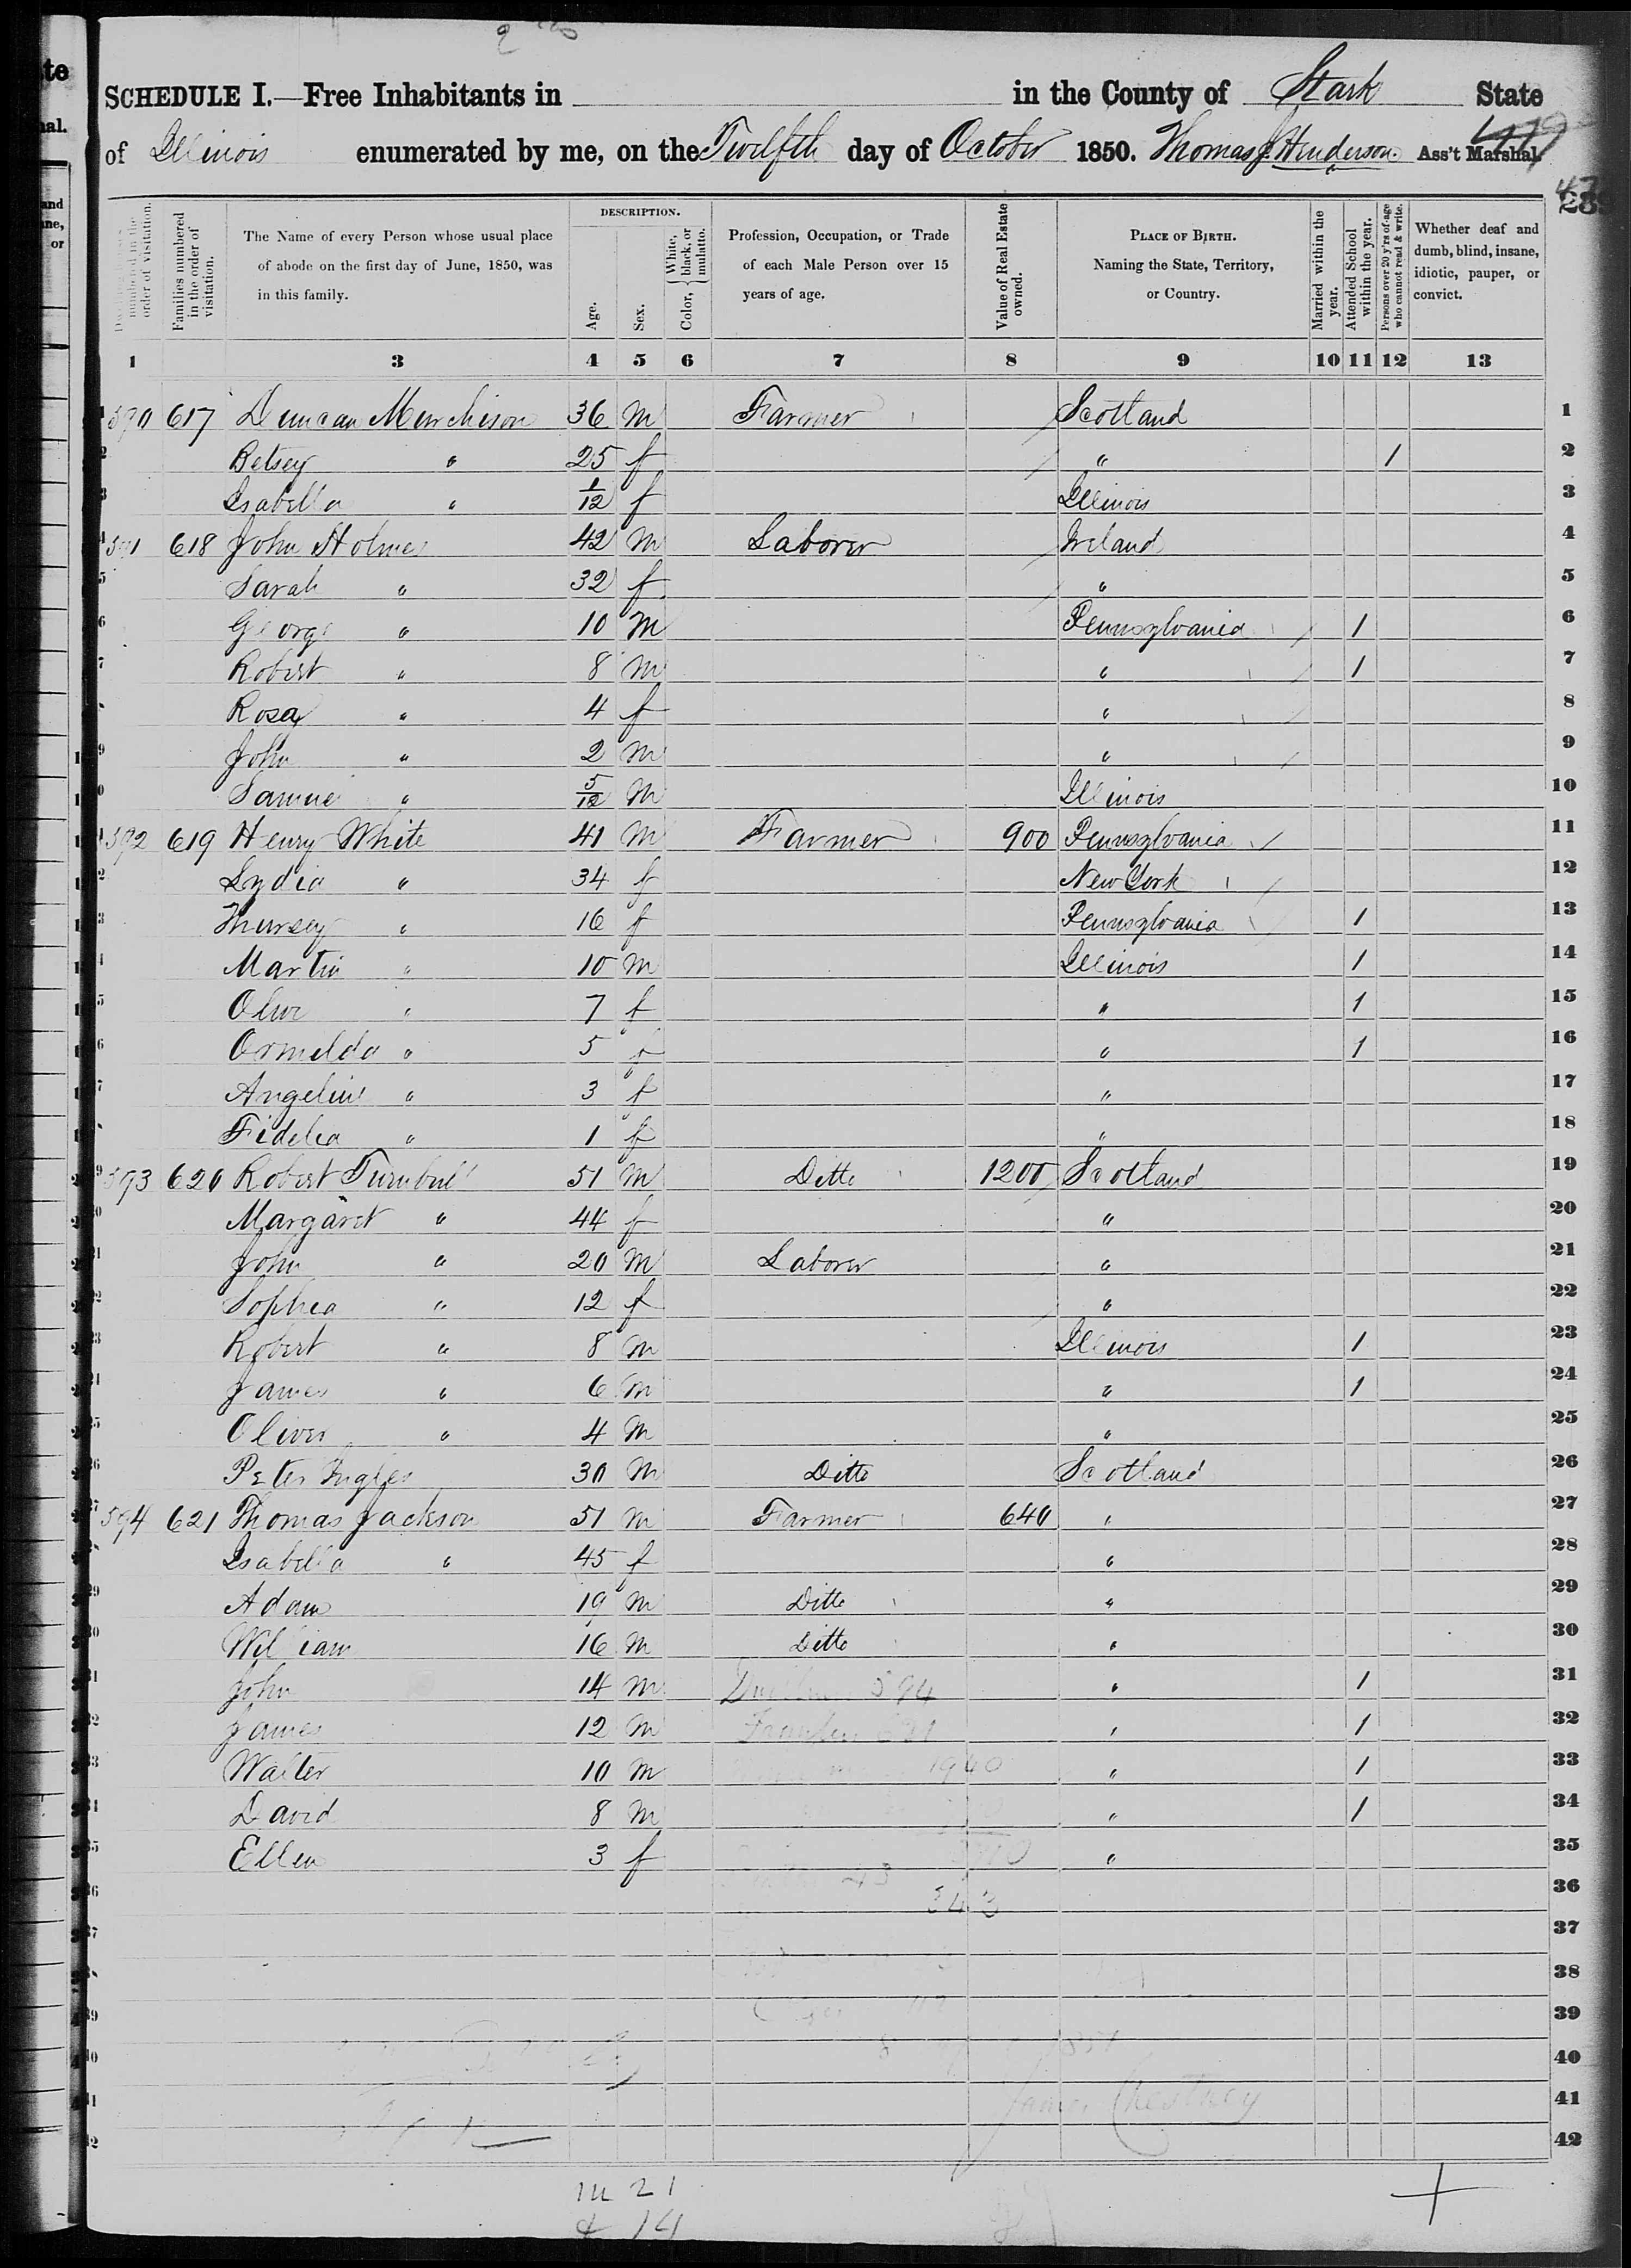 SCHEDULE I.—Free Inhabitants in in the County of Stark State
of Illinois enumerated by me, on the Twelfth day of October 1850. Thomas J. Henderson. Ass't Marshal.
DESCRIPTION.
numbered in the order of visitation.
Families numbered in the order of visitation.
The Name of every Person whose usual place of abode on the first day of June, 1850, was in this family.
Age.
Sex.
Color, { White, black, or mulatto.
Profession, Occupation, or Trade of each Male Person over 15 years of age.
Value of Real Estate owned.
PLACE OF BIRTH. Naming the State, Territory, or Country.
Married within the year.
Attended School within the year.
Persons over 20 y'rs of age who cannot read & write.
Whether deaf and dumb, blind, insane, idiotic, pauper, or convict.
1 3 4 5 6 7 8 9 10 11 12 13
590 617 Duncan Murchison 36 m Farmer Scotland 1
Betsey " 25 f " 1 2
Isabella " 1/12 f Illinois 3
591 618 John Holmes 42 m Laborer Ireland 4
Sarah " 32 f " 5
George " 10 m Pennsylvania 1 6
Robert " 8 m " 1 7
Rosa " 4 f " 8
John " 2 m " 9
Samuel " 5/12 m Illinois 10
592 619 Henry White 41 m Farmer 900 Pennsylvania 11
Lydia " 34 f New York 12
Thursey " 16 f Pennsylvania 1 13
Martin " 10 m Illinois 1 14
Olive " 7 f " 1 15
Ormelda " 5 f " 1 16
Angeline " 3 f " 17
Fidelia " 1 f " 18
593 620 Robert Turnbull 51 m Ditto 1200 Scotland 19
Margaret " 44 f " 20
John " 20 m Laborer " 21
Sophia " 12 f " 22
Robert " 8 m Illinois 1 23
James " 6 m " 1 24
Oliver " 4 m " 25
Peter Ingles 30 m Ditto Scotland 26
594 621 Thomas Jackson 51 m Farmer 640 " 27
Isabella " 45 f " 28
Adam 19 m Ditto " 29
William 16 m Ditto " 30
John 14 m 594 " 1 31
James 12 m " 1 32
Walter 10 m 1940 " 1 33
David 8 m " 1 34
Ellen 3 f " 35
43
343
36
37
38
39
40
James Chestney 41
42
m 21
f 14